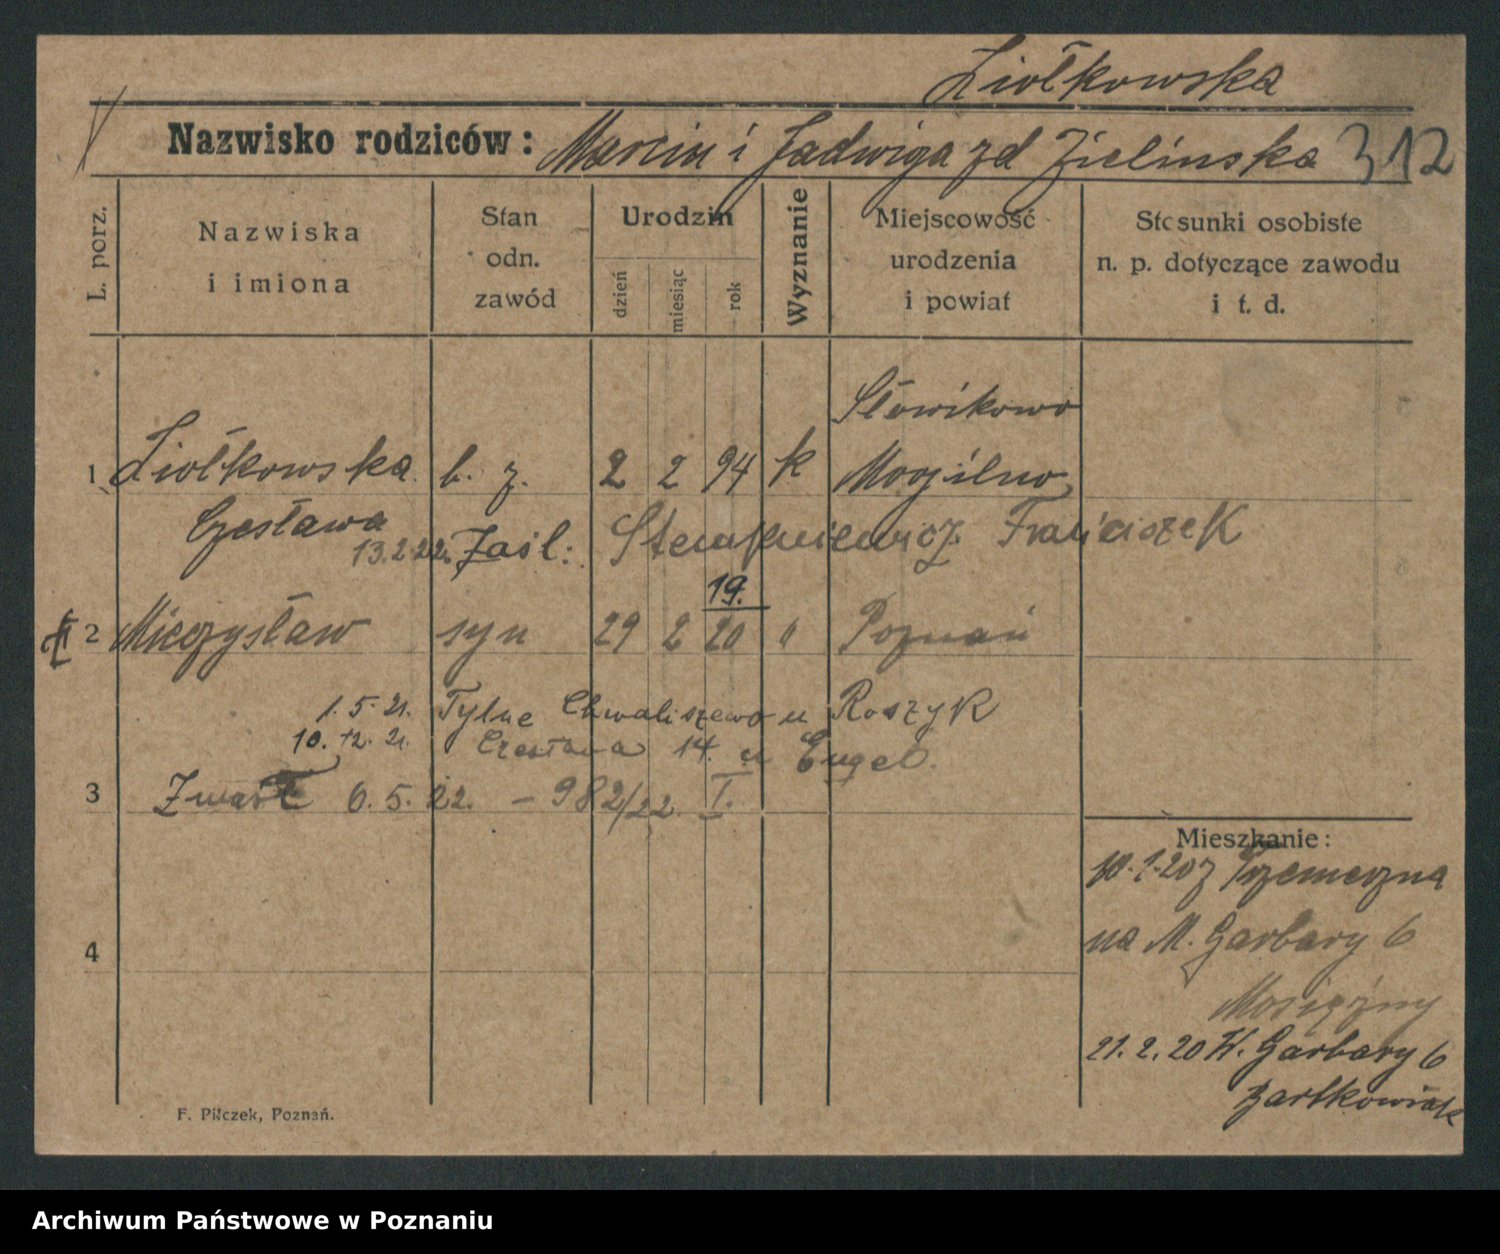 Ziołkowska
Nazwisko rodziców: Marcin i Jadwiga zd Zielinska 312
L. porz.
Nazwiska
i imiona
Stan
odn.
zawód
Urodzin
dzień
miesiąc
rok
Wyznanie
Miejscowość
urodzenia
i powiat
Stosunki osobiste
n. p. dotyczące zawodu
i t. d.
Słowikowo
1 Ziołkowska b. z. 2 2 94 k Mogilno
Czesława
13.2.22. Zaśl: Stempniewicz Franciszek
19.
2 Mieczysław syn 29 2 20 " Poznań
1. 5. 21. Tylne Chwaliszewo u Roszyk
10. 12. 21. Czesława 14. u Engel.
3 Zmarł 6. 5. 22. – 982/22. I.
4
Mieszkanie:
10.1.20 z Trzemeszna
na M. Garbary 6
Mosiężny
21. 2. 20 W. Garbary 6
Bartkowiak
F. Pilczek, Poznań.
Archiwum Państwowe w Poznaniu